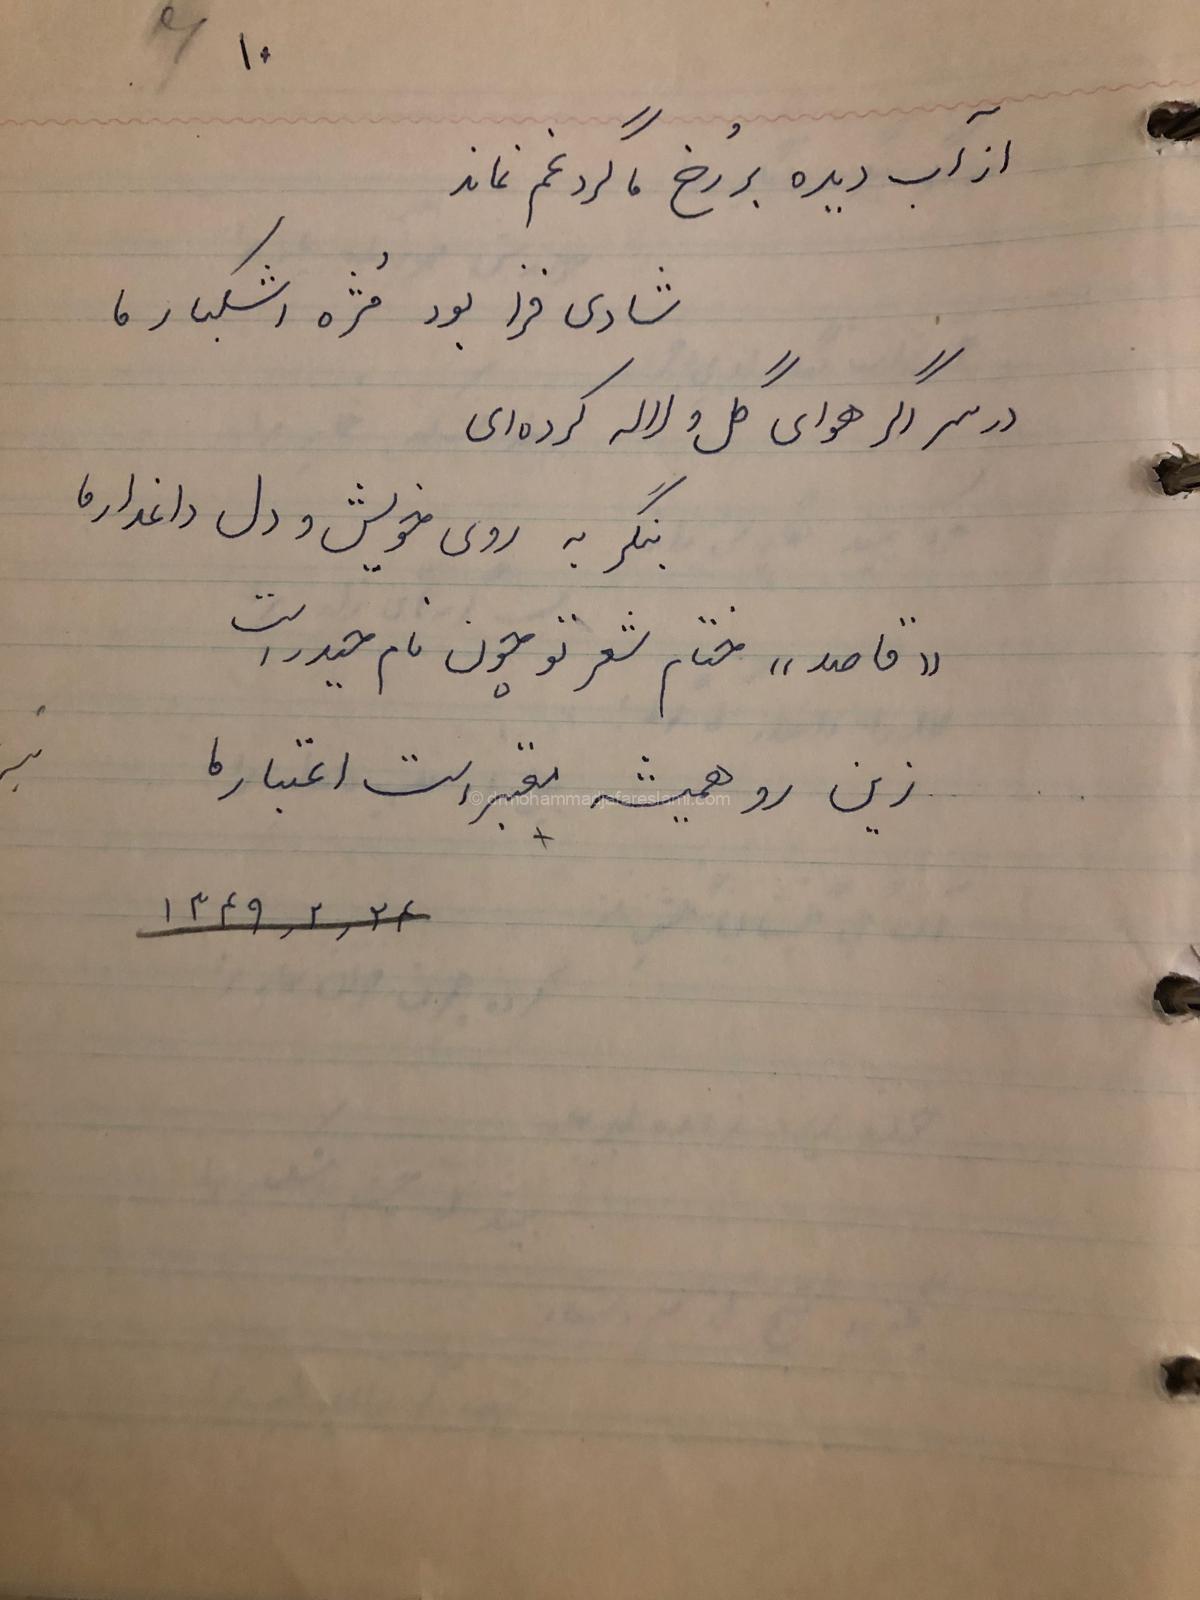 ۱۰
از آب دیده بر رُخ ما گرد غم نماند
شادی فزا بود مُژه اشکبار ما
در سر اگر هوای گل و لاله کرده‌ای
بنگر به روی خویش و دل داغدار ما
«قاصد» ختام شعر تو چون نام حیدر است
زین رو همیشه معتبر است اعتبار ما
© drmohammadjafareslami.com
۱۳۴۹,۲,۲۴